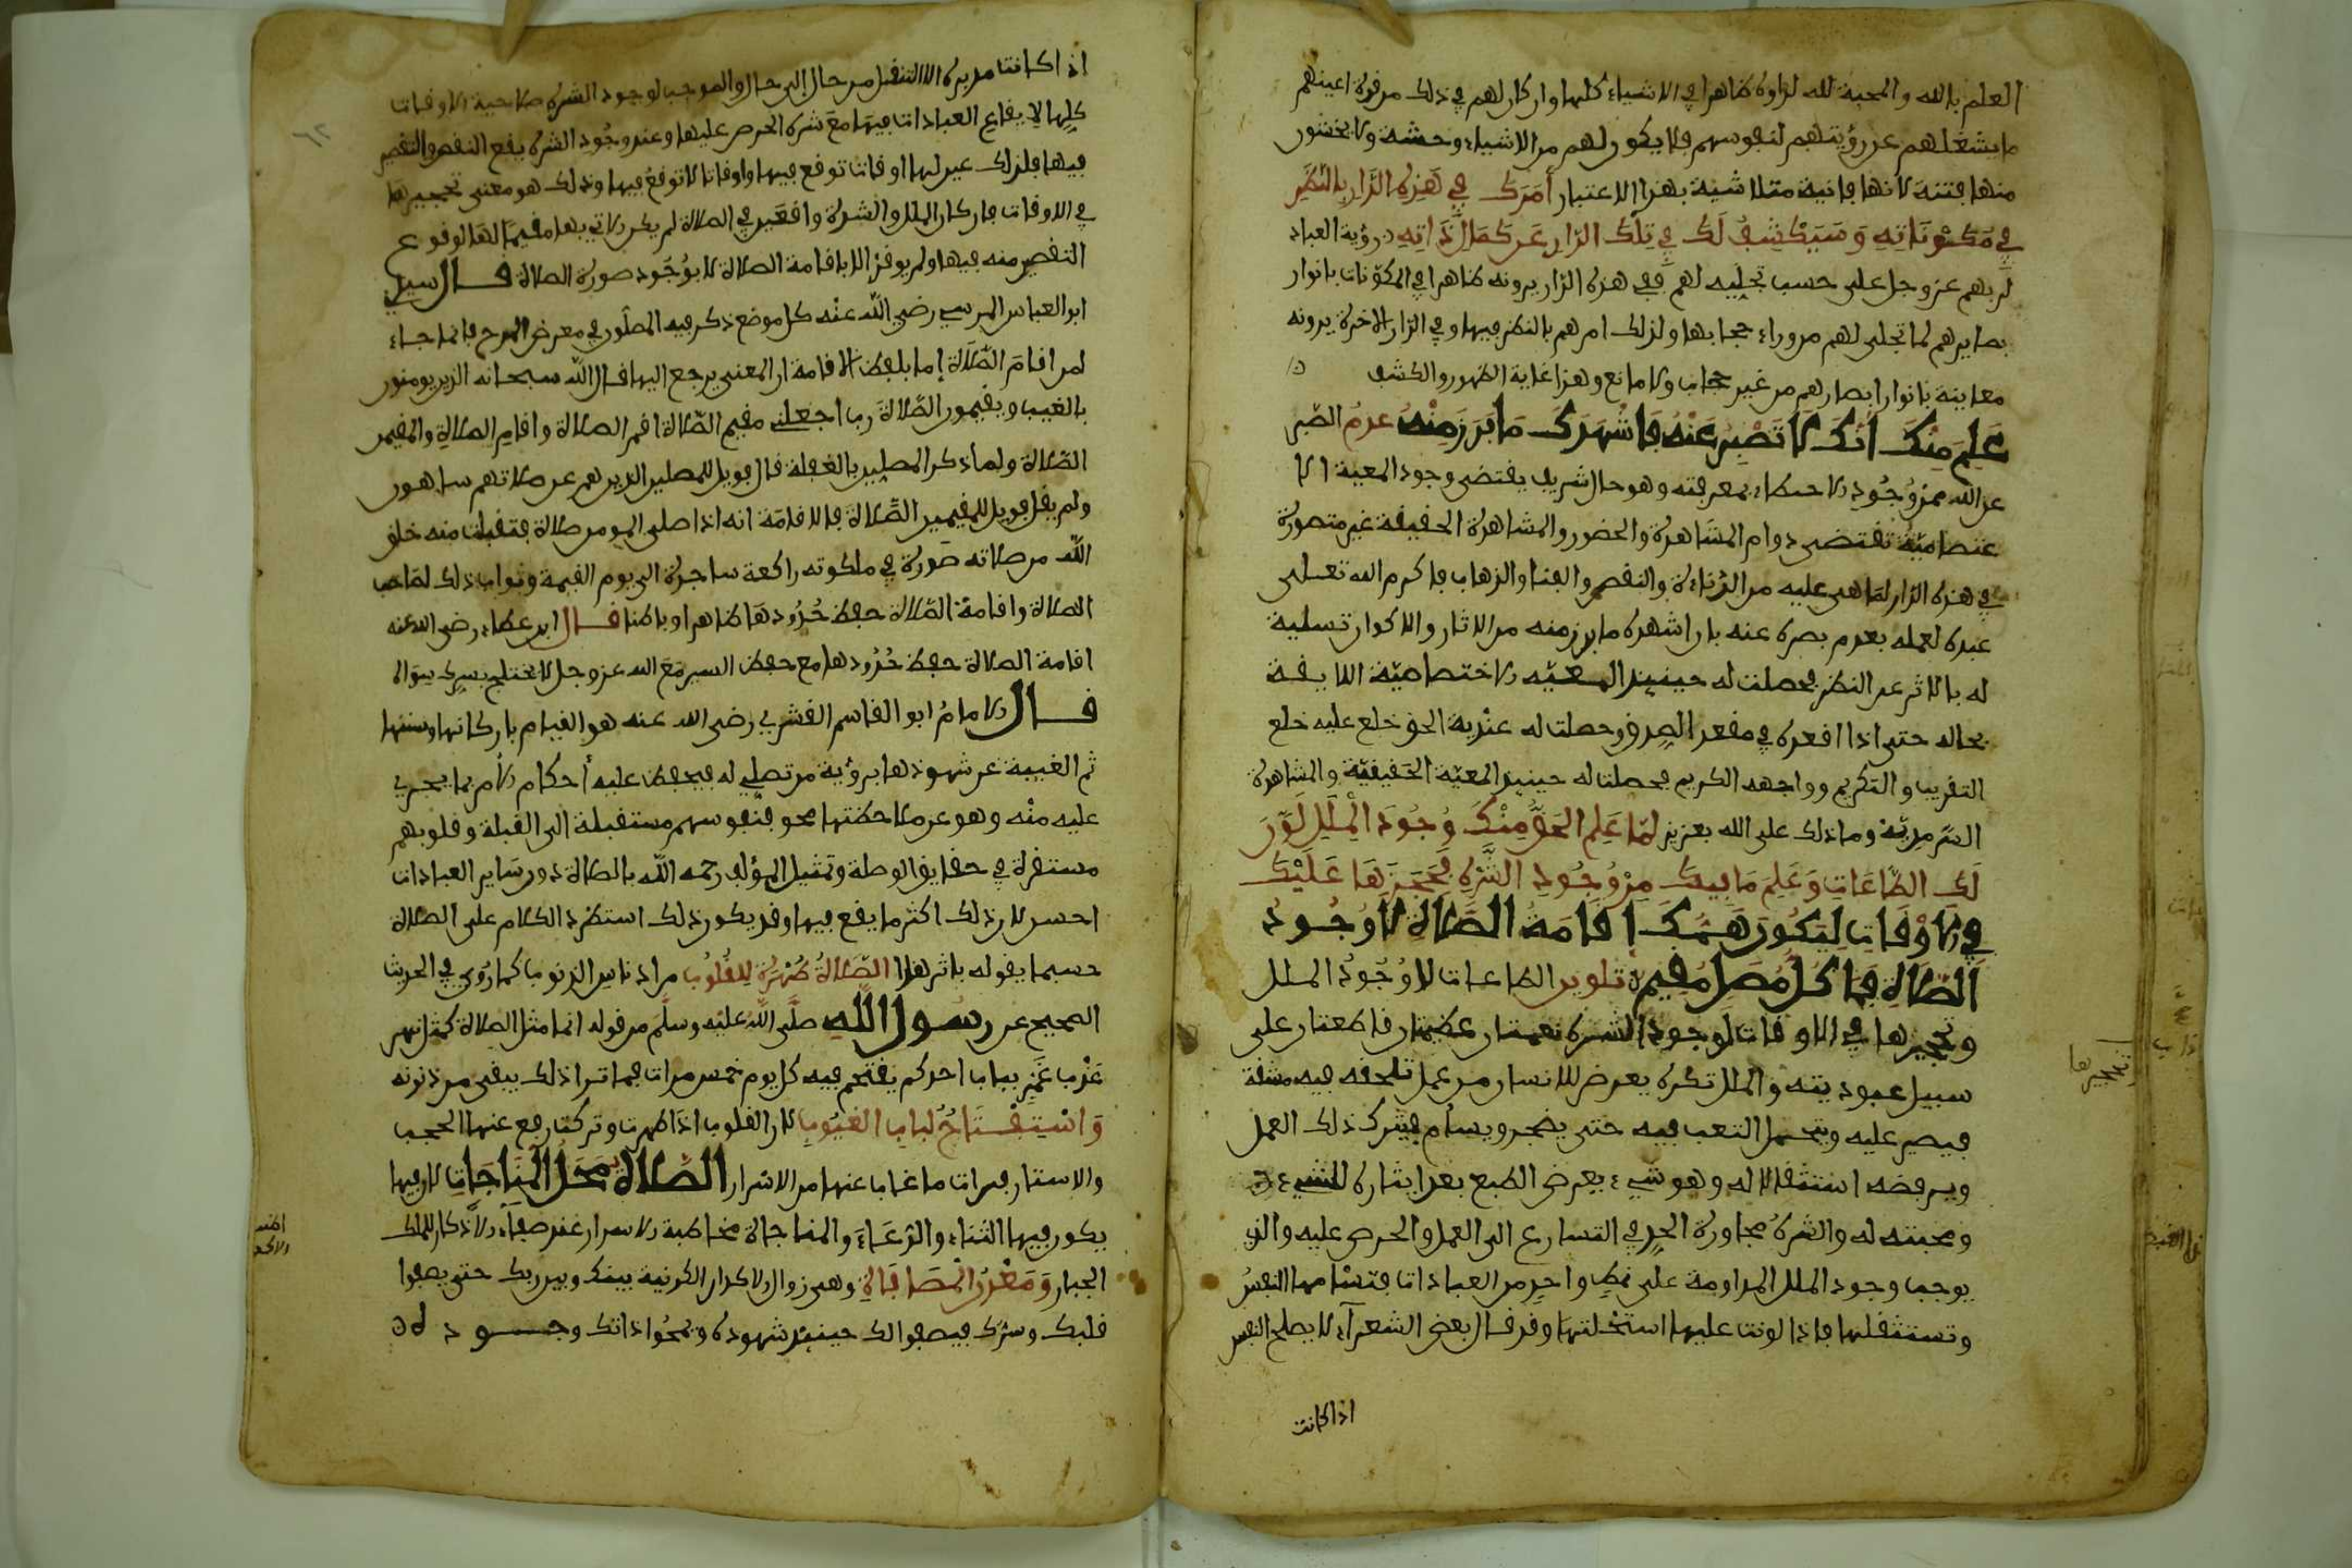 العلم بالله والمحبة لله لراوه ظاهرا في الاشياء كلها واركان لهم في ذلك من قرة اعينهم
ما يشغلهم عن رؤيتهم لنفوسهم فلا يكون لهم من الاشياء وحشة ولا يخشون
منها فتنة لانها فانية متلاشية بهذا الاعتبار أَمَرَكَ فِي هَذِهِ الدَّارِ بِالنَّظَرِ
فِي مُكَوَّنَاتِهِ وَسَيَكْشِفُ لَكَ فِي تِلْكَ الدَّارِ عَن كَمَالِ ذَاتِهِ رؤية العباد
لربهم عز وجل على حسب تجليه لهم ففي هذه الدار يرونه ظاهرا في المكوّنات بانوار
بصايرهم لما تجلى لهم من وراء حجابها ولذلك امرهم بالنظر فيها وفي الدار الاخرة يرونه
معاينة بانوار ابصارهم من غير حجاب ولا مانع وهذا غاية الظهور والكشف
عَلِمَ مِنْكَ أَنَّكَ لَا تَصْبِرُ عَنْهُ فَأَشْهَدَكَ مَا بَرَزَ مِنْهُ عدمُ الصّبر
عن الله من وُجُودِ الاحتظاء بمعرفته وهو حال شريف يقتضي وجود المعية الا
ختصاصيّة تقتضي دوام المشاهدة والحضور والمشاهدة الحقيقة غير متصورة
في هذه الدار لما هي عليه من الدّناءة والنقص والفنا والذهاب فاكرم الله تعلى
عبده لعمله بعدم بصره عنه بان اشهده ما برز منه من الاثار والاكوان تسلية
له بالاثر عن النظر فحصلت له حينيذ المعيّه الاختصاصيّة اللايقة
بحاله حتى اذا اقعده في مقعد الصدق وحصلت له عنْدية الحق خلع عليه خلع
التقريب والتكريم وواجهه الكريم فحصلت له حينيذ المعيّة الحقيقيّة والمشاهدة
السّرمديّة وما ذلك على الله بعزيز لَمّا عَلِمَ الحَقُّ مِنْكَ وُجُودَ الْمَلَلِ لَوَّنَ
لَكَ الطَّاعَاتِ وَعَلِمَ مَا فِيكَ مِنْ وُجُودِ الشَّرَهِ فَحَجَرَهَا عَلَيْكَ
فِي الأَوْقَاتِ لِيَكُونَ هَمُّكَ إِقَامَةُ الصَّلَاةِ لَا وُجُودُ
الصَّلَاةِ فَمَا كُلُّ مُصَلٍّ مُقِيمٌ تلوين الطاعات لاوُجُودُ الملل
وتحجيرها في الاوقات لوجود الشره نعمتان عظيمتان قاطعتان على
سبيل عبوديته والملل تكره يعرض للانسان من عمل تلحقه فيه مشقة
فيصبر عليه ويتحمل التعب فيه حتى يضجر ويسأم فيترك ذلك العمل
ويرفضه استثقالا له وهو شيء يعرض الطبع بعد ايثاره للشيء
ومحبته له والشرهُ مجاورة الحد في التسارع الى العمل والحرص عليه والذ
يوجب وجود الملل المداومة على نمط واحد من العبادات فتسْامها النفسُ
وتستثقلها فاذا لونت عليها استحْلتها وقد قال بعض الشعرآء لا يصلح النفس
اذا كانت
اذا كانت مدبرة الا التنقل من حال الى حال والموجب لوجود الشره صلاحية الاوقات
كلها لإيقاع العبادات فيها معَ شره الحرص عليها وعند وجُودِ الشره يقع النقص والتقصير
فيها فلذلك عين لها اوقات توقع فيها واوقات لا توقع فيها وذلك هو معنى تحجيرها
في الاوقات فان كان الملل والشره واقعَين في الصلاة لم يكن الاتي بها مقيمًا لها لوقوع
التقصير منه فيها ولم يوف الا باقامة الصلاة لا بوُجُود صورة الصلاة قال سيدي
ابو العباس المرسي رضي الله عنْه كل موضع ذكر فيه المصلّون في معرض المدح فانما جاء
لمن اقامَ الصَّلَاة إما بلفظ الاقامة او المعنى يرجع اليها قال الله سبحانه الذين يومنون
بالغيب ويقيمون الصّلاةَ رب اجعلني مقيم الصّلاة اقم الصلاة واقامِ الصلاةِ والمقيمين
الصّلاة ولما ذكر المصلين بالغفلة قال فويل للمصلين الذين هم عن صلاتهم ساهون
ولم يقل فويل للمقيمين الصّلاة فالاقامَة انه اذا صلى المومن صلاة فتقبلت منه خلق
اللّه من صلاته صَورة في ملكوته راكعة ساجدة الى يوم القيمة وثواب ذلك لصَاحب
الصلاة واقامة الصّلاة حفظ حُدُودهَا ظاهرا وباطنا قال ابن عطاء رضي الله عنه
اقامة الصلاة حفظ حُدُودها مع حفظ السر مَع الله عز وجل لا يختلج بسرك سِوَاه
قال الامامُ ابو القاسم القشيري رضي الله عنه هو القيام باركانها وسننها
ثم الغيبة عن شهودها برؤية من تصلي له فيحفظ عليه أحكام الأمر بما يجري
عليه منْه وهو عن ملاحظتها محو فنفوسهم مستقبلة الى القبلة وقلوبهم
مستغرقة في حقايق الوصلة وتمثيل المؤلف رحمه اللّه بالصلاة دون سَاير العبادات
احسن لان ذلك اكثر ما يقع فيها وقد يكون ذلك استطرد الكلام على الصلاة
حسبما يقوله باثر هذا الصَّلَاةُ طُهْرَةٌ لِلقُلُوبِ من ادناس الذنوب كما رُوي في الحديث
الصحيح عن رسُول اللهِ صلَّى اللّه عليْه وسلّمَ من قوله انما مثل الصلاة كمثل نهر
عَذْب غَمْرٍ بباب احدكم يقتحم فيه كل يوم خمس مرات فما ترا ذلك يبقى من درنه
وَاسْتِفْتَاحٌ لِبَابِ الغُيُوبِ لان القلوب اذا طهرت وتركت رفع عنها الحجب
والاستار فرات ما غاب عنها من الاسْرار الصَّلَاةُ مَحَلُّ المُنَاجَاتِ لان فيها
يكون فيها الثناء والدّعَاءَ والمناجاة مخاطبة الاسرار عند صفاء الاذكار للملك
الجبار وَمَعْدِنُ الْمُصَافَاةِ وهي زوال الاكدار الكونية بينك وبين ربك حتى يصفوا
قلبك وسرّك فيصفوا لك حينئذ شهوده ويمحُوا ذاتك وجود له